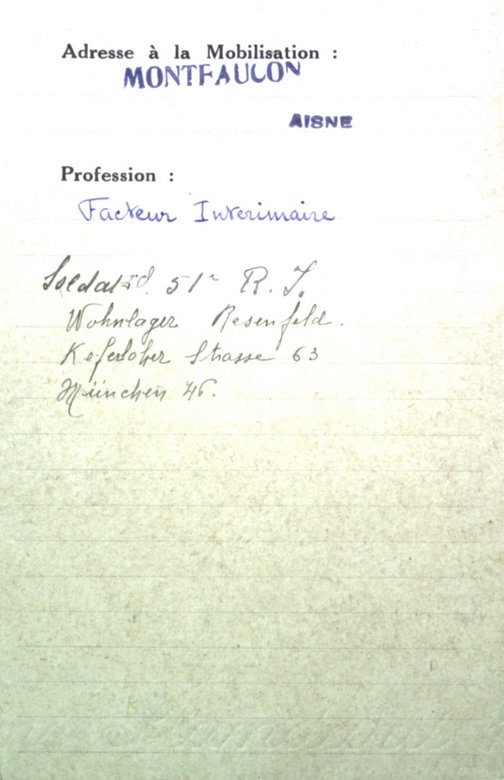 Adresse à la Mobilisation :
MONTFAUCON
AISNE
Profession :
Facteur Interimaire
Soldat 51e R. I.
Wohnlager Resenfeld.
Keferloher Strasse 63
München 46.